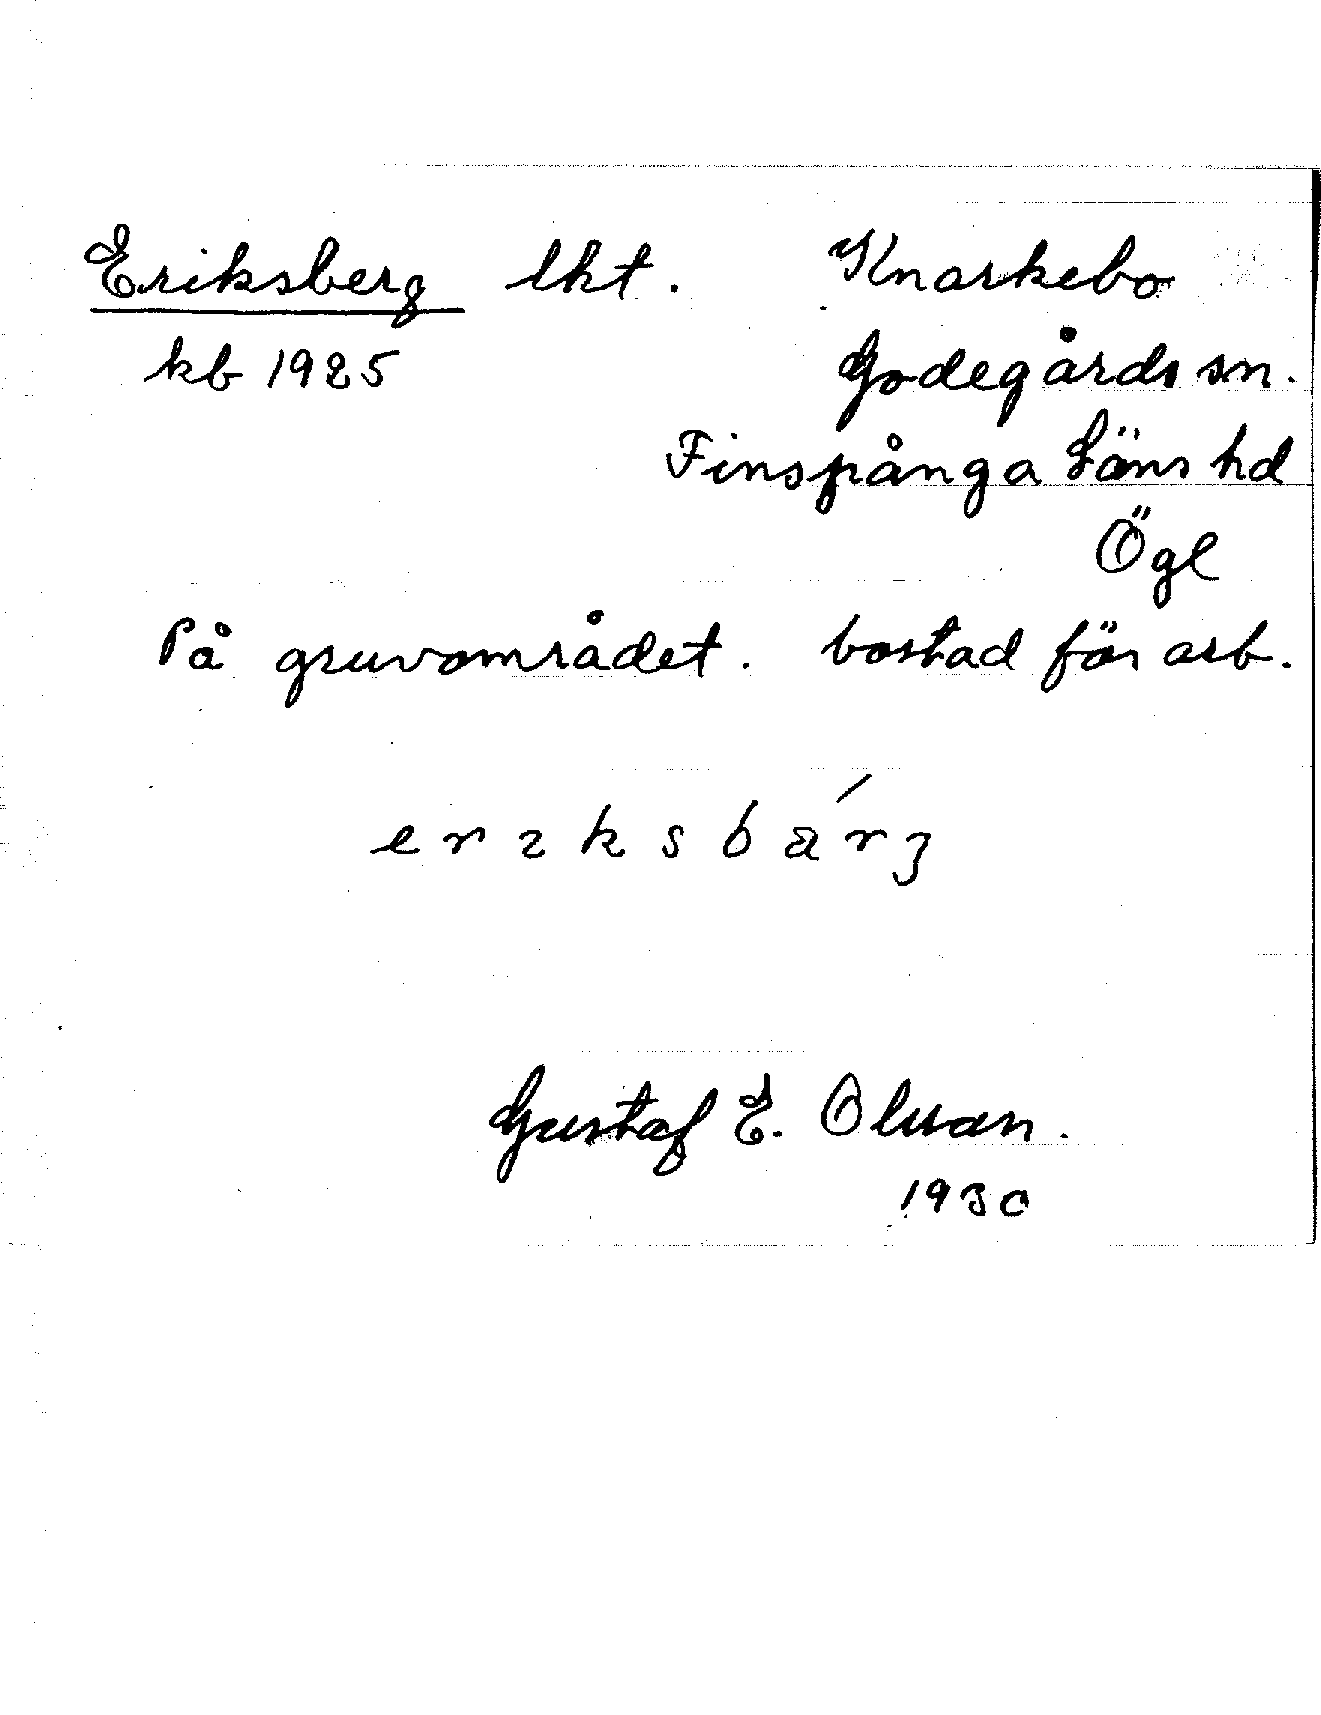 Eriksberg lht. Knarkebo
kb 1925 Godegårds sn.
Finspånga Läns hd
Ögl
På gruvområdet. bostad för arb.
erıksbǽrʒ
Gustaf E. Olsson.
1930